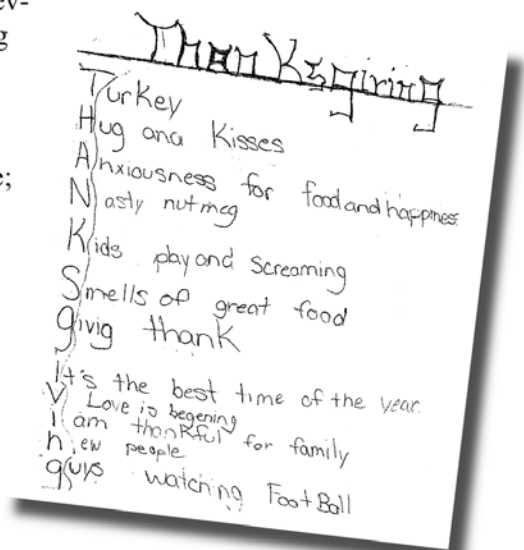 ev-
g
e;
ThanKsgiving
Turkey
Hug and Kisses
Anxiousness for food and happiness
Nasty nutmeg
Kids play and screaming
Smells of great food
givig thanK
It's the best time of the year.
V Love is begening
i am thanKful for family
new people
guys watching FootBall